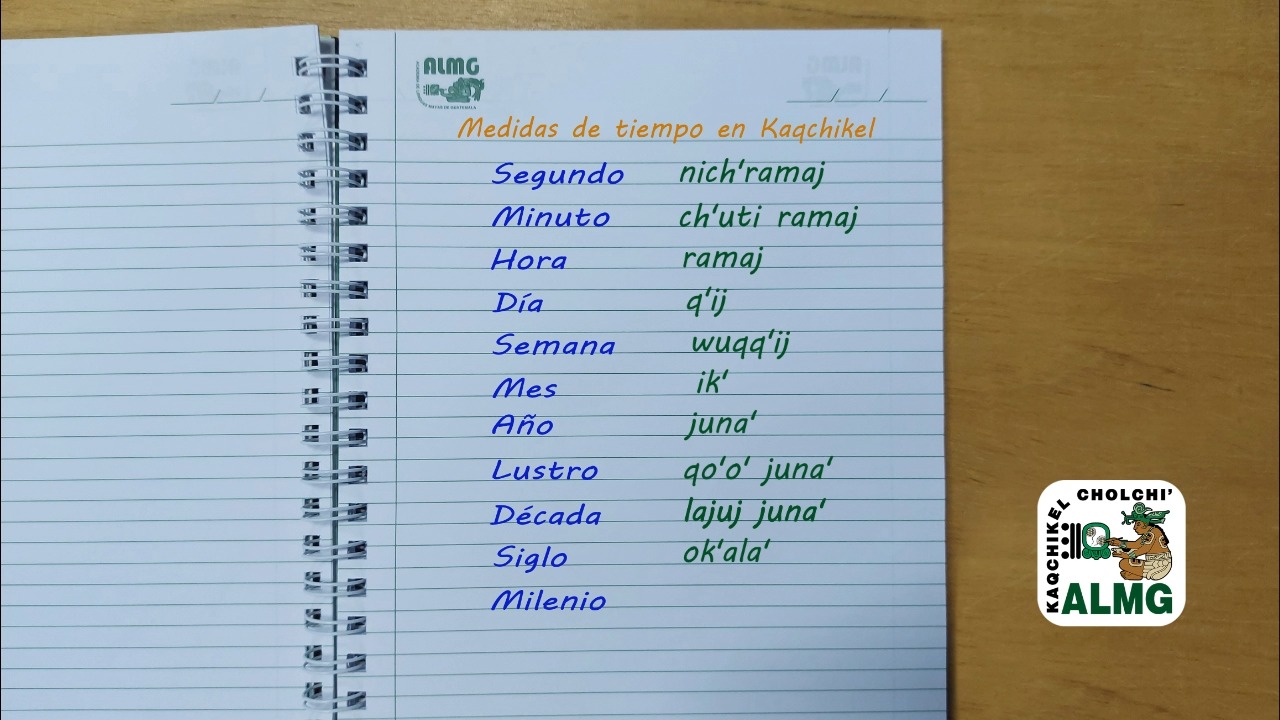 ALMG
MAYAS DE GUATEMALA
Medidas de tiempo en Kaqchikel
Segundo nich'ramaj
Minuto ch'uti ramaj
Hora ramaj
Día q'ij
Semana wuqq'ij
Mes ik'
Año juna'
Lustro qo'o' juna'
Década lajuj juna'
Siglo ok'ala'
Milenio
KAQCHIKEL CHOLCHI'
ALMG